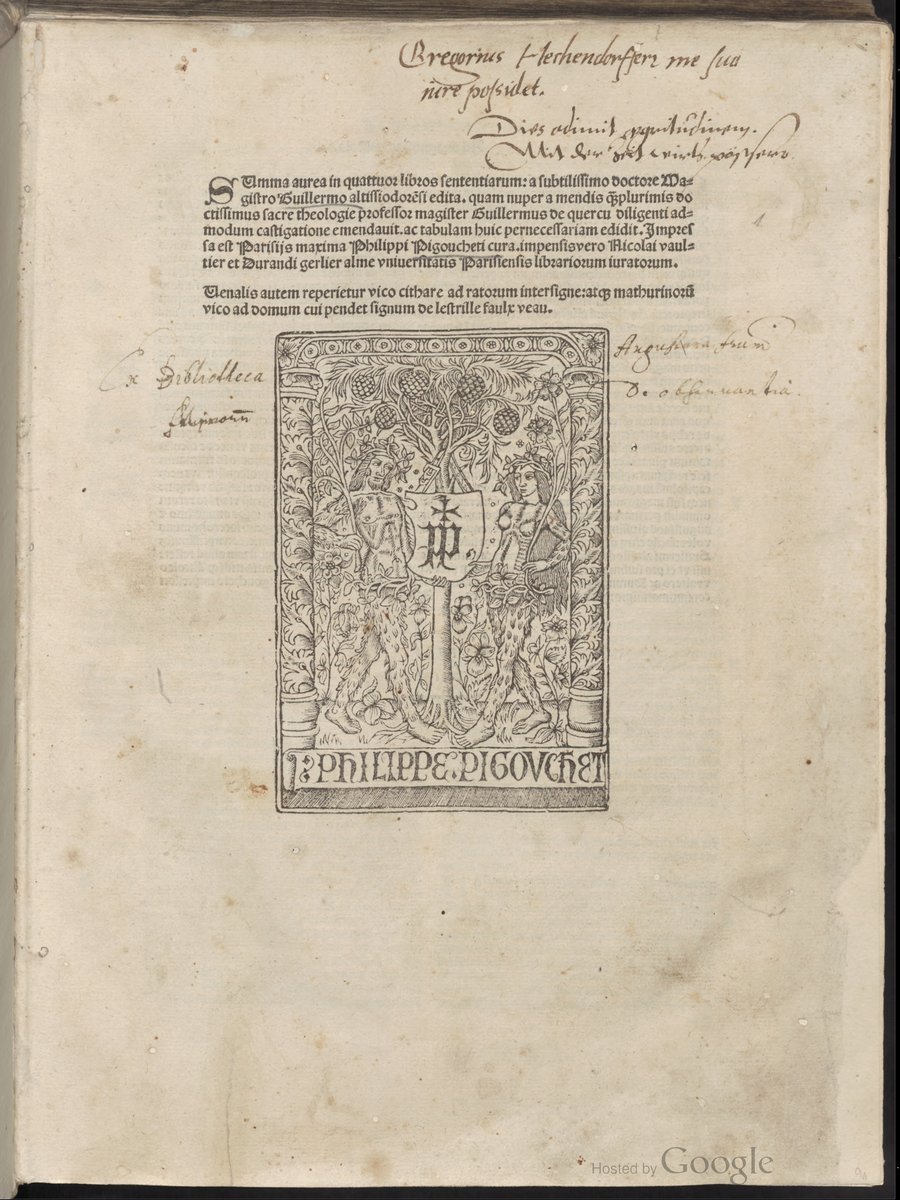 Gregorius Hechendorffer me suo
iure possidet.
Dies adimit egritudinem.
Mit der Zeit wirts pössers
SUmma aurea in quattuor libros sententiarum: a subtilissimo doctore Ma-
gistro Guillermo altissiodorēsi edita. quam nuper a mendis q̄plurimis do
ctissimus sacre theologie professor magister Guillermus de quercu diligenti ad-
modum castigatione emendauit. ac tabulam huic pernecessariam edidit. Impres
sa est Parisijs maxima Philippi Pigoucheti cura. impensis vero Nicolai vaul-
tier et Durandi gerlier alme vniuersitatis Parisiensis librariorum iuratorum.
Uenalis autem reperietur vico cithare ad ratorum intersigne: atqꝫ mathurinorū
vico ad domum cui pendet signum de lestrille faulx veau.
Ex Bibliotheca
Augustana frum
D. obseruantia.
PHILIPPE. PIGOVCHET
Hosted by Google